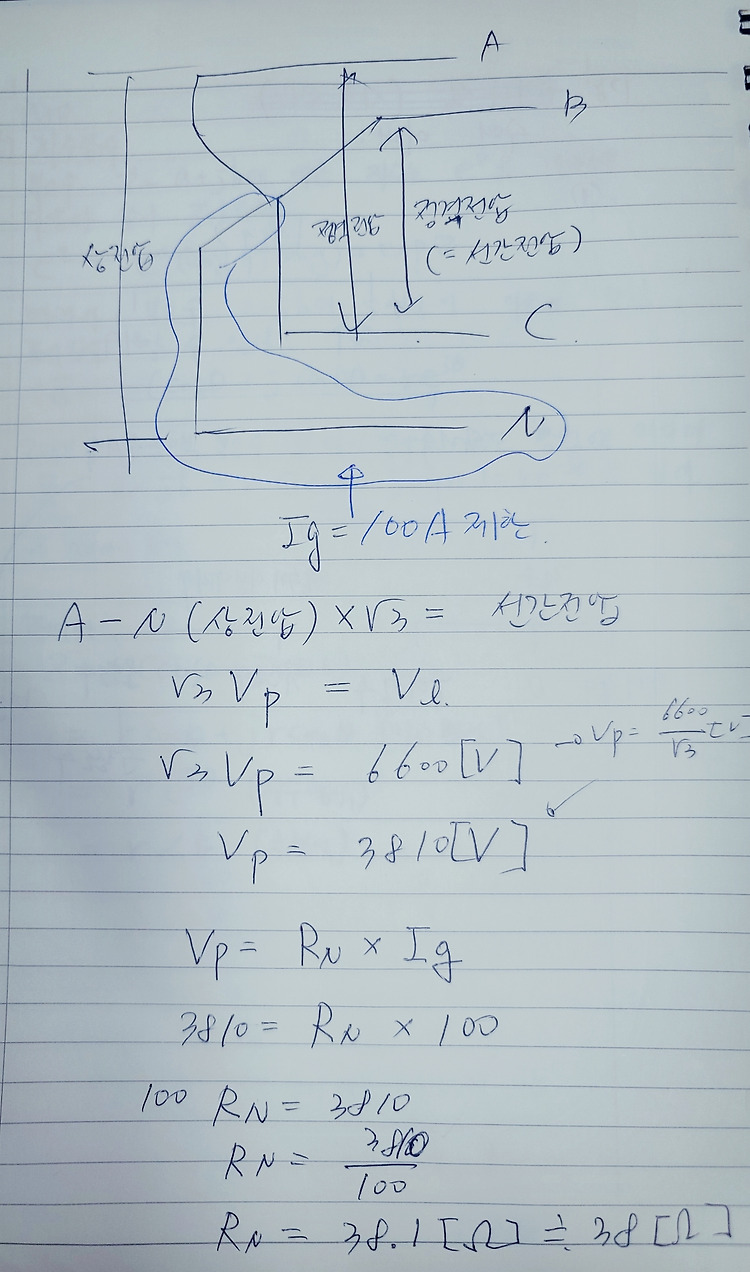 A
B
C
N
Ig = 100A 제한.
A - N (상전압) × √3 = 선간전압
√3 Vp = Vℓ.
√3 Vp = 6600 [V] → Vp = 6600/√3
Vp = 3810 [V]
Vp = R_N × Ig
3810 = R_N × 100
100 R_N = 3810
R_N = 3810/100
R_N = 38.1 [Ω] ≒ 38 [Ω]